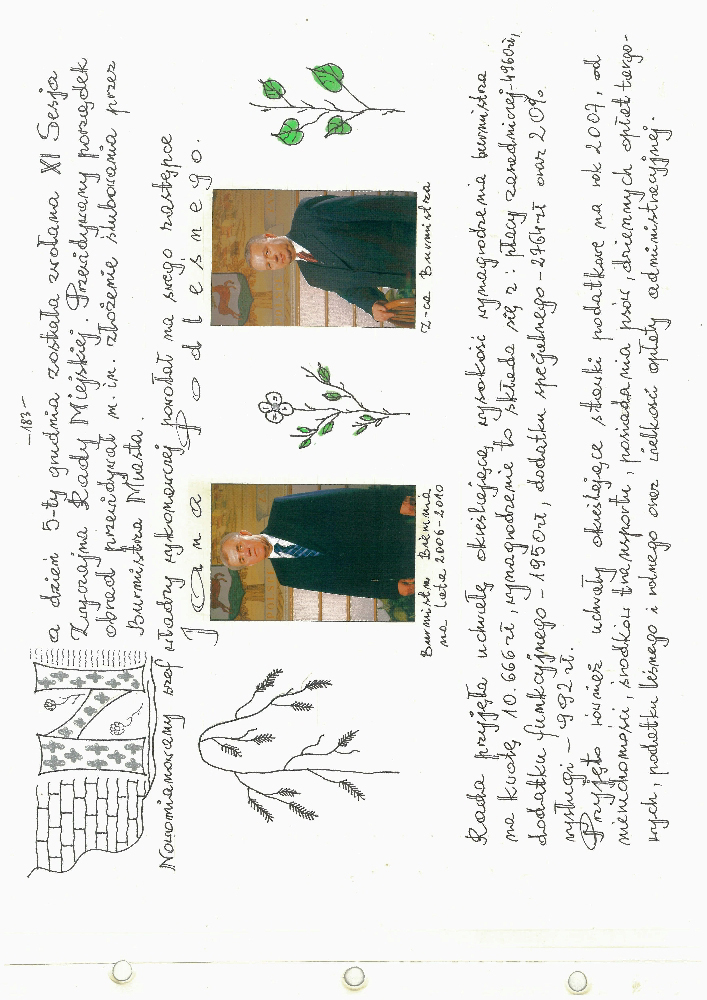 -183-
Na dzień 5-ty grudnia została zwołana XI Sesja
Zwyczajna Rady Miejskiej. Przewidywany porządek
obrad przewidywał m.in. złożenie ślubowania przez
Burmistrza Miasta.
Nowomianowany szef władzy wykonawczej powołał na swego zastępce
Jana Podleśnego.
Burmistrz Biennia
na lata 2006-2010
Z-ca Burmistrza
Rada przyjęła uchwałę określającą wysokość wynagrodzenia burmistrza
na kwotę 10.666 zł, wynagrodzenie to składa się z: płacy zasadniczej-4960zł,
dodatku funkcyjnego - 1950zł, dodatku specjalnego - 2764zł oraz 20%
wysługi - 992 zł.
Przyjęto również uchwały określające stawki podatkowe na rok 2007, od
nieruchomości, środków transportu, posiadania psów, dziennych opłat targo-
wych, podatku leśnego i rolnego oraz wielkości opłaty administracyjnej.